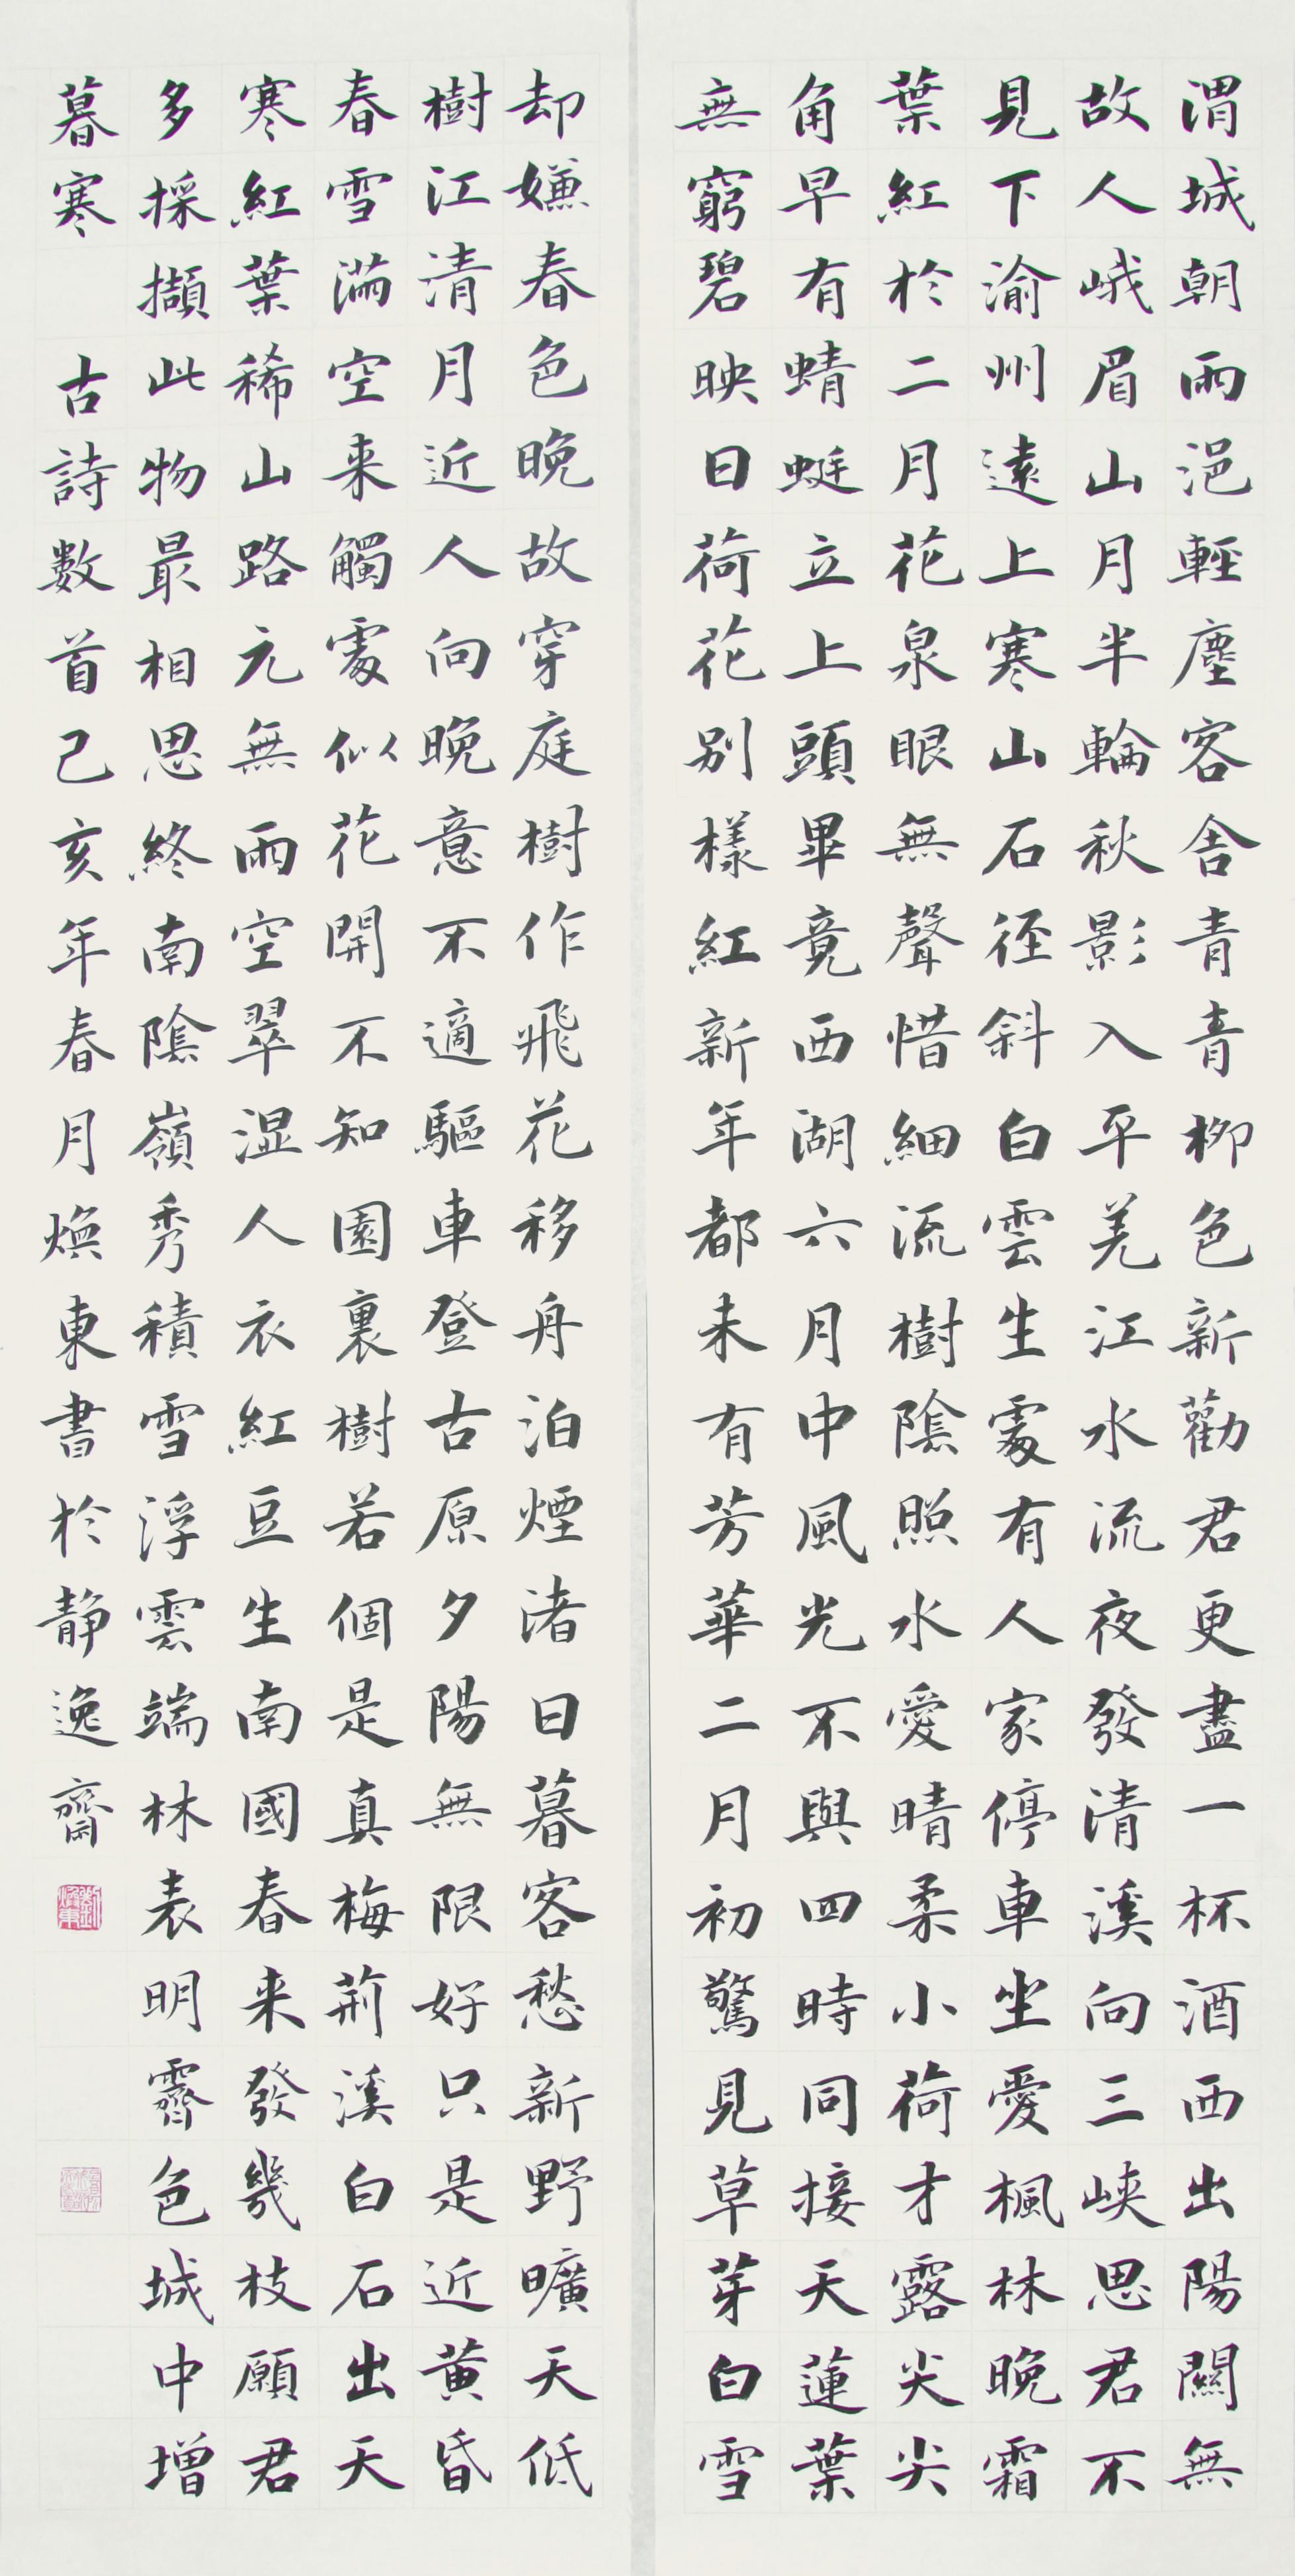 渭城朝雨浥輕塵客舍青青柳色新勸君更盡一杯酒西出陽關無
故人峨眉山月半輪秋影入平羌江水流夜發清溪向三峽思君不
見下渝州遠上寒山石徑斜白雲生處有人家停車坐愛楓林晚霜
葉紅於二月花泉眼無聲惜細流樹陰照水愛晴柔小荷才露尖尖
角早有蜻蜓立上頭畢竟西湖六月中風光不與四時同接天蓮葉
無窮碧映日荷花別樣紅新年都未有芳華二月初驚見草芽白雪
却嫌春色晚故穿庭樹作飛花移舟泊煙渚日暮客愁新野曠天低
樹江清月近人向晚意不適驅車登古原夕陽無限好只是近黄昏
春雪滿空来觸處似花開不知園裏樹若個是真梅荊溪白石出天
寒紅葉稀山路元無雨空翠湿人衣紅豆生南國春来發幾枝願君
多採擷此物最相思終南陰嶺秀積雪浮雲端林表明霽色城中增
暮寒 古詩數首己亥年春月煥東書於静逸齋
劉煥東